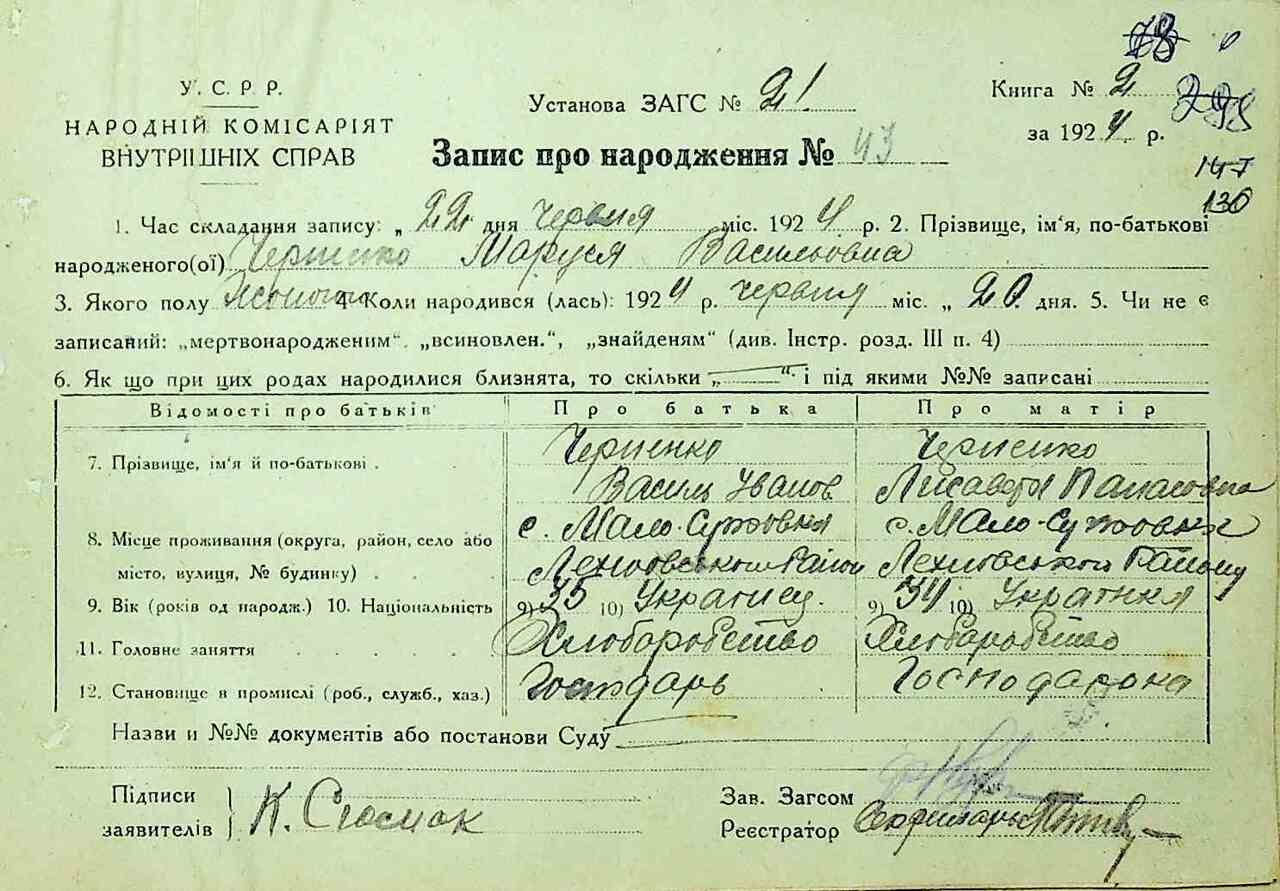 78
298
147
130
У. С. Р. Р.
НАРОДНІЙ КОМІСАРІЯТ
ВНУТРІШНІХ СПРАВ
Установа ЗАГС № 21.
Книга № 2
за 1924 р.
Запис про народження № 43
1. Час складання запису: „ 22 дня червня міс. 1924 р. 2. Прізвище, ім'я, по-батькові
народженого(ої) Черненко Маруся Васильовна
3. Якого полу Жоночого 4 Коли народився (лась): 1924 р. червня міс. „ 20. дня. 5. Чи не є
записаний: „мертвонародженим“. „всиновлен.“, „знайденям“ (див. Інстр. розд. III п. 4)
6. Як що при цих родах народилися близнята, то скільки „ — “ і під якими №№ записані
Відомості про батьків Про батька Про матір
7. Прізвище, ім'я й по-батькові . Черненко Черненко
Василь Іванов Лисавета Панасовна
8. Місце проживання (округа, район, село або с. Мало-Сутовка с. Мало-Сутовка
місто, вулиця, № будинку) . . район Району
9. Вік (років од народж.) 10. Національність 9) 35 10) Украінец. 9) 34 10) Украінка
11. Головне заняття . . . . . Хлоборобство Хлоборобство
12. Становище в промислі (роб., служб., хаз.) Господарь Господарька
Назви и №№ документів або постанови Суду
Підписи
заявителів
К.
Зав. Загсом
Реєстратор Секретарь